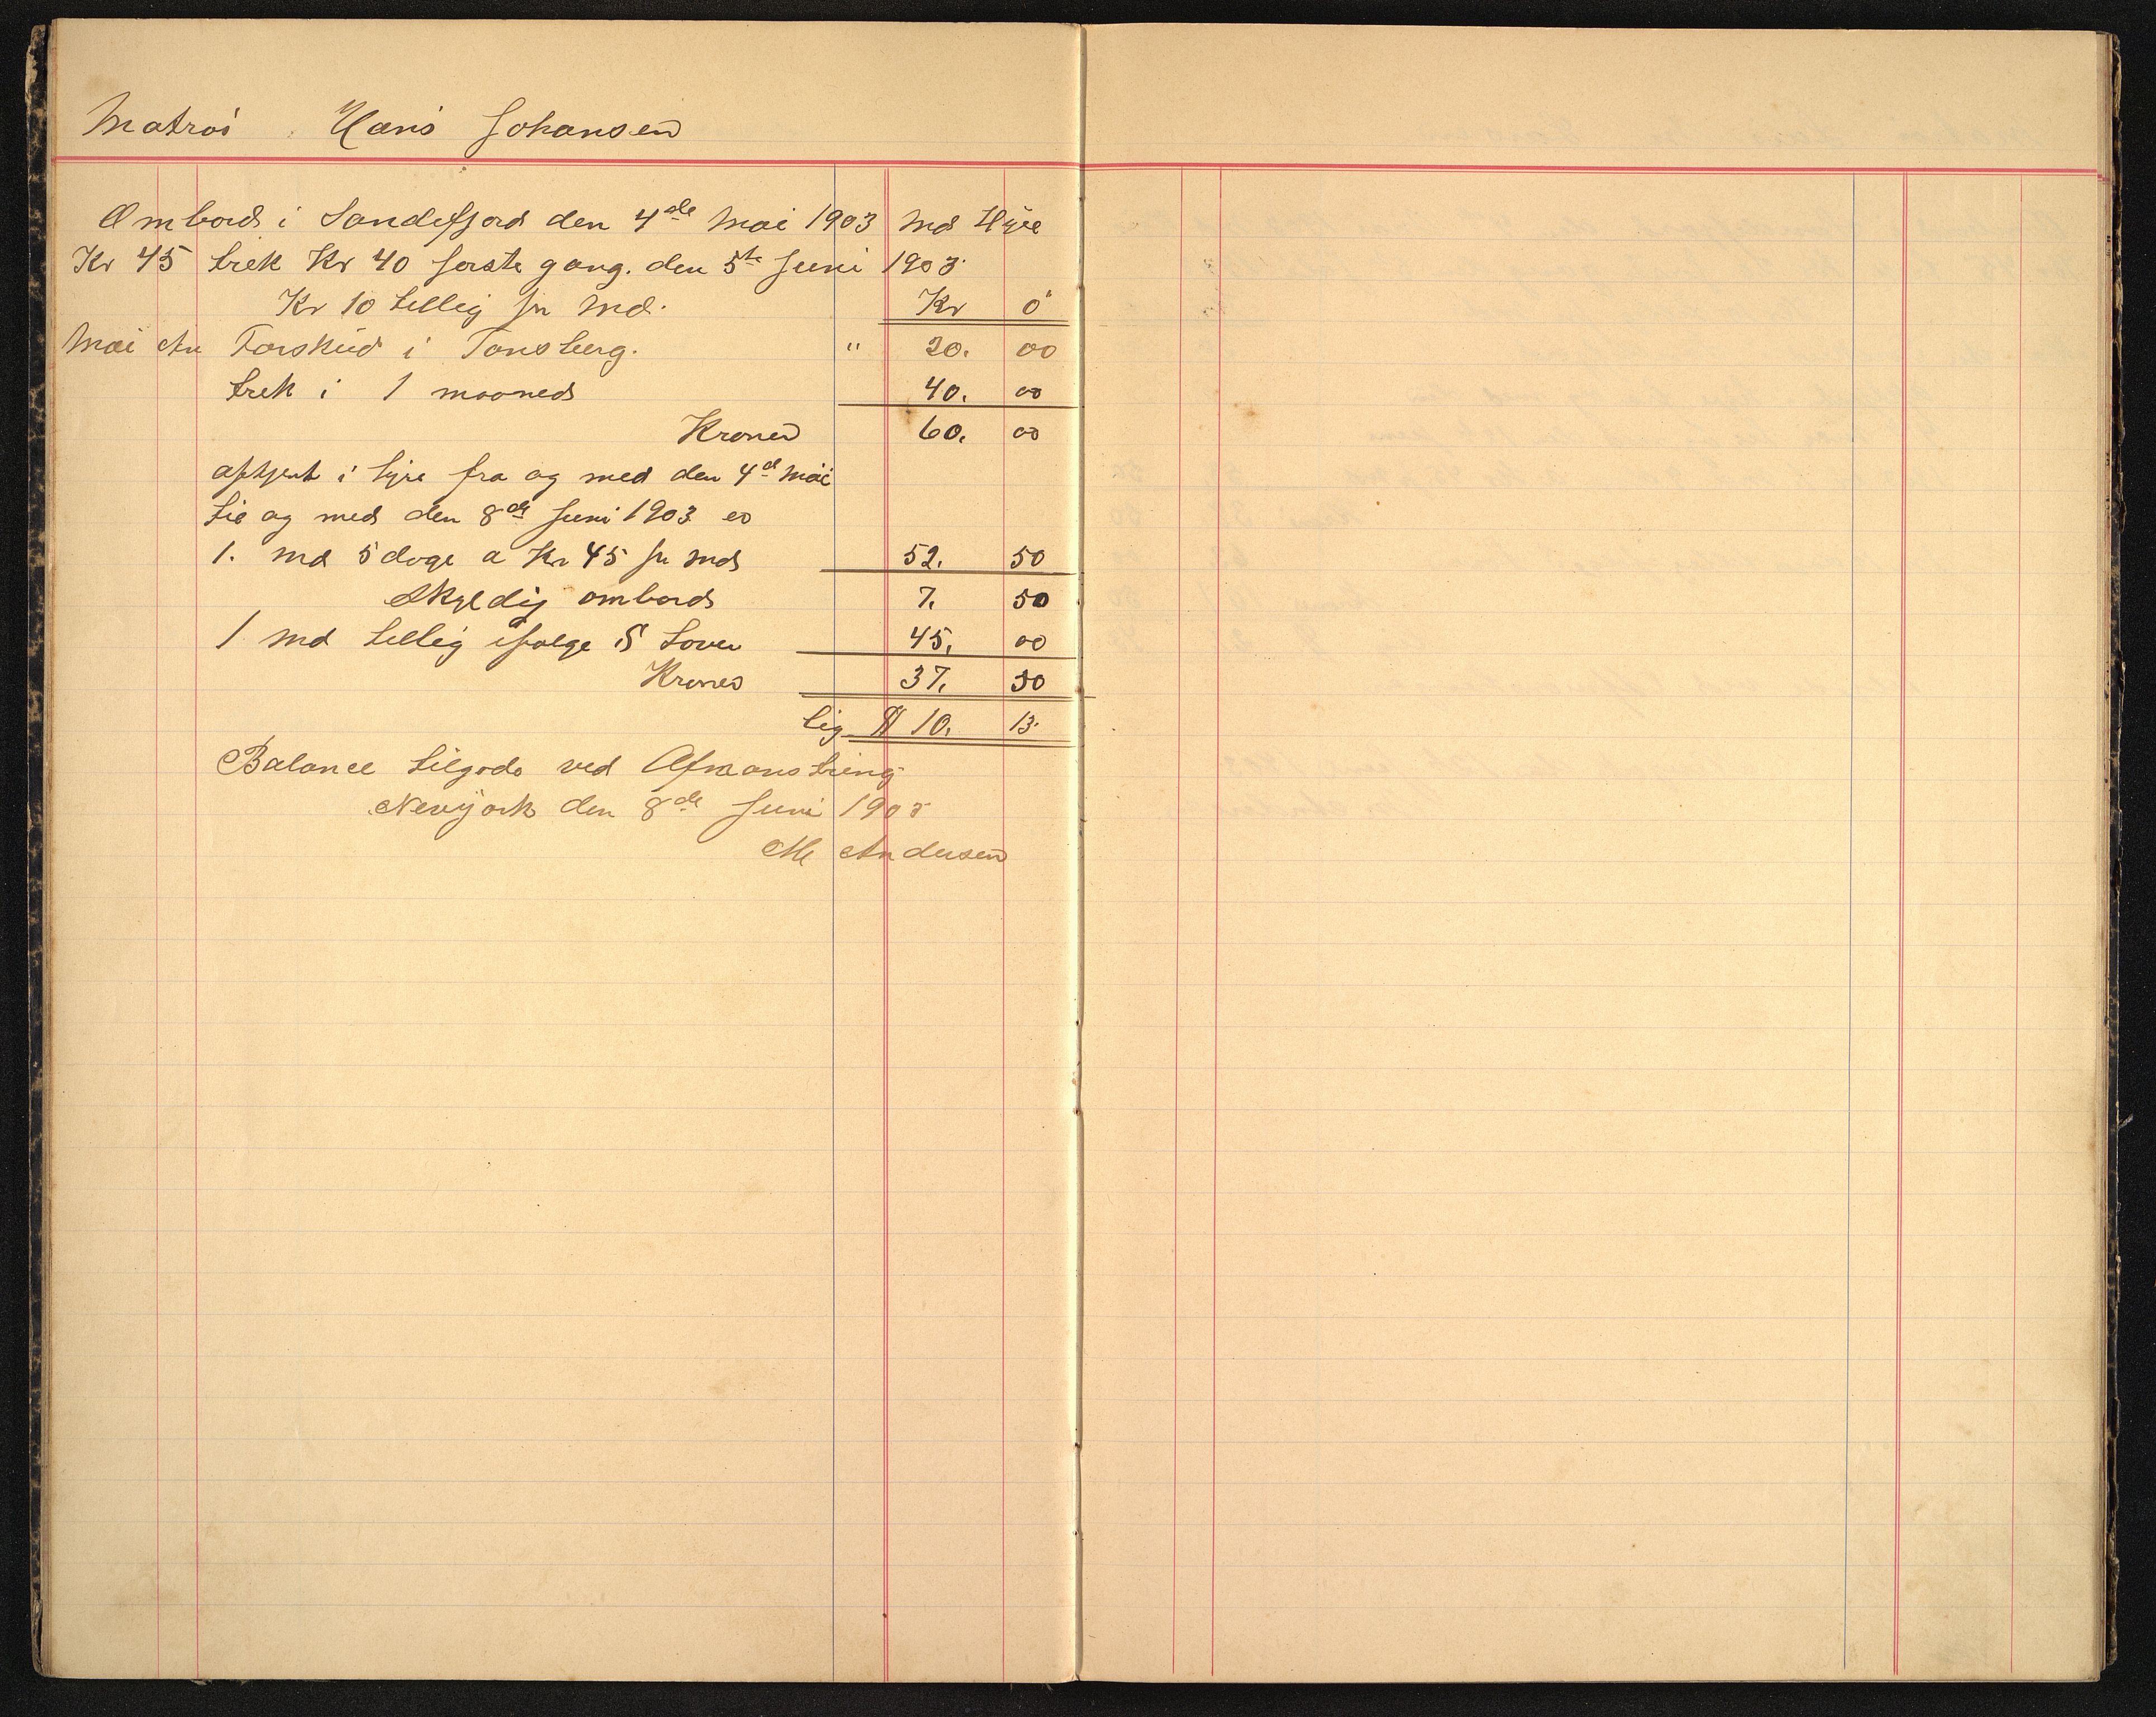 Matros Hans Johansen
Ombord i Sandefjord den 4de Mai 1903 Md Hyre
Kr 45 trek Kr 40 forste gang. den 5te Juni 1903
Kr 10 tillig pr Md. Kr ö
Mai An Forskud i Tonsberg. " 20. 00
trek i 1 maaneds 40. 00
Kroner 60. 00
aftjent i hyre fra og med den 4d Mai
til og med den 8de Juni 1903 er
1. Md 5 dage a Kr 45 pr Md 52. 50
Skyldig ombord 7. 50
1 Md tillig ifolge § Loven 45. 00
Kroner 37. 50
lig $ 10. 13.
Balance tilgode ved Afmønstring
Newyork den 8de Juni 1903
M Andersen